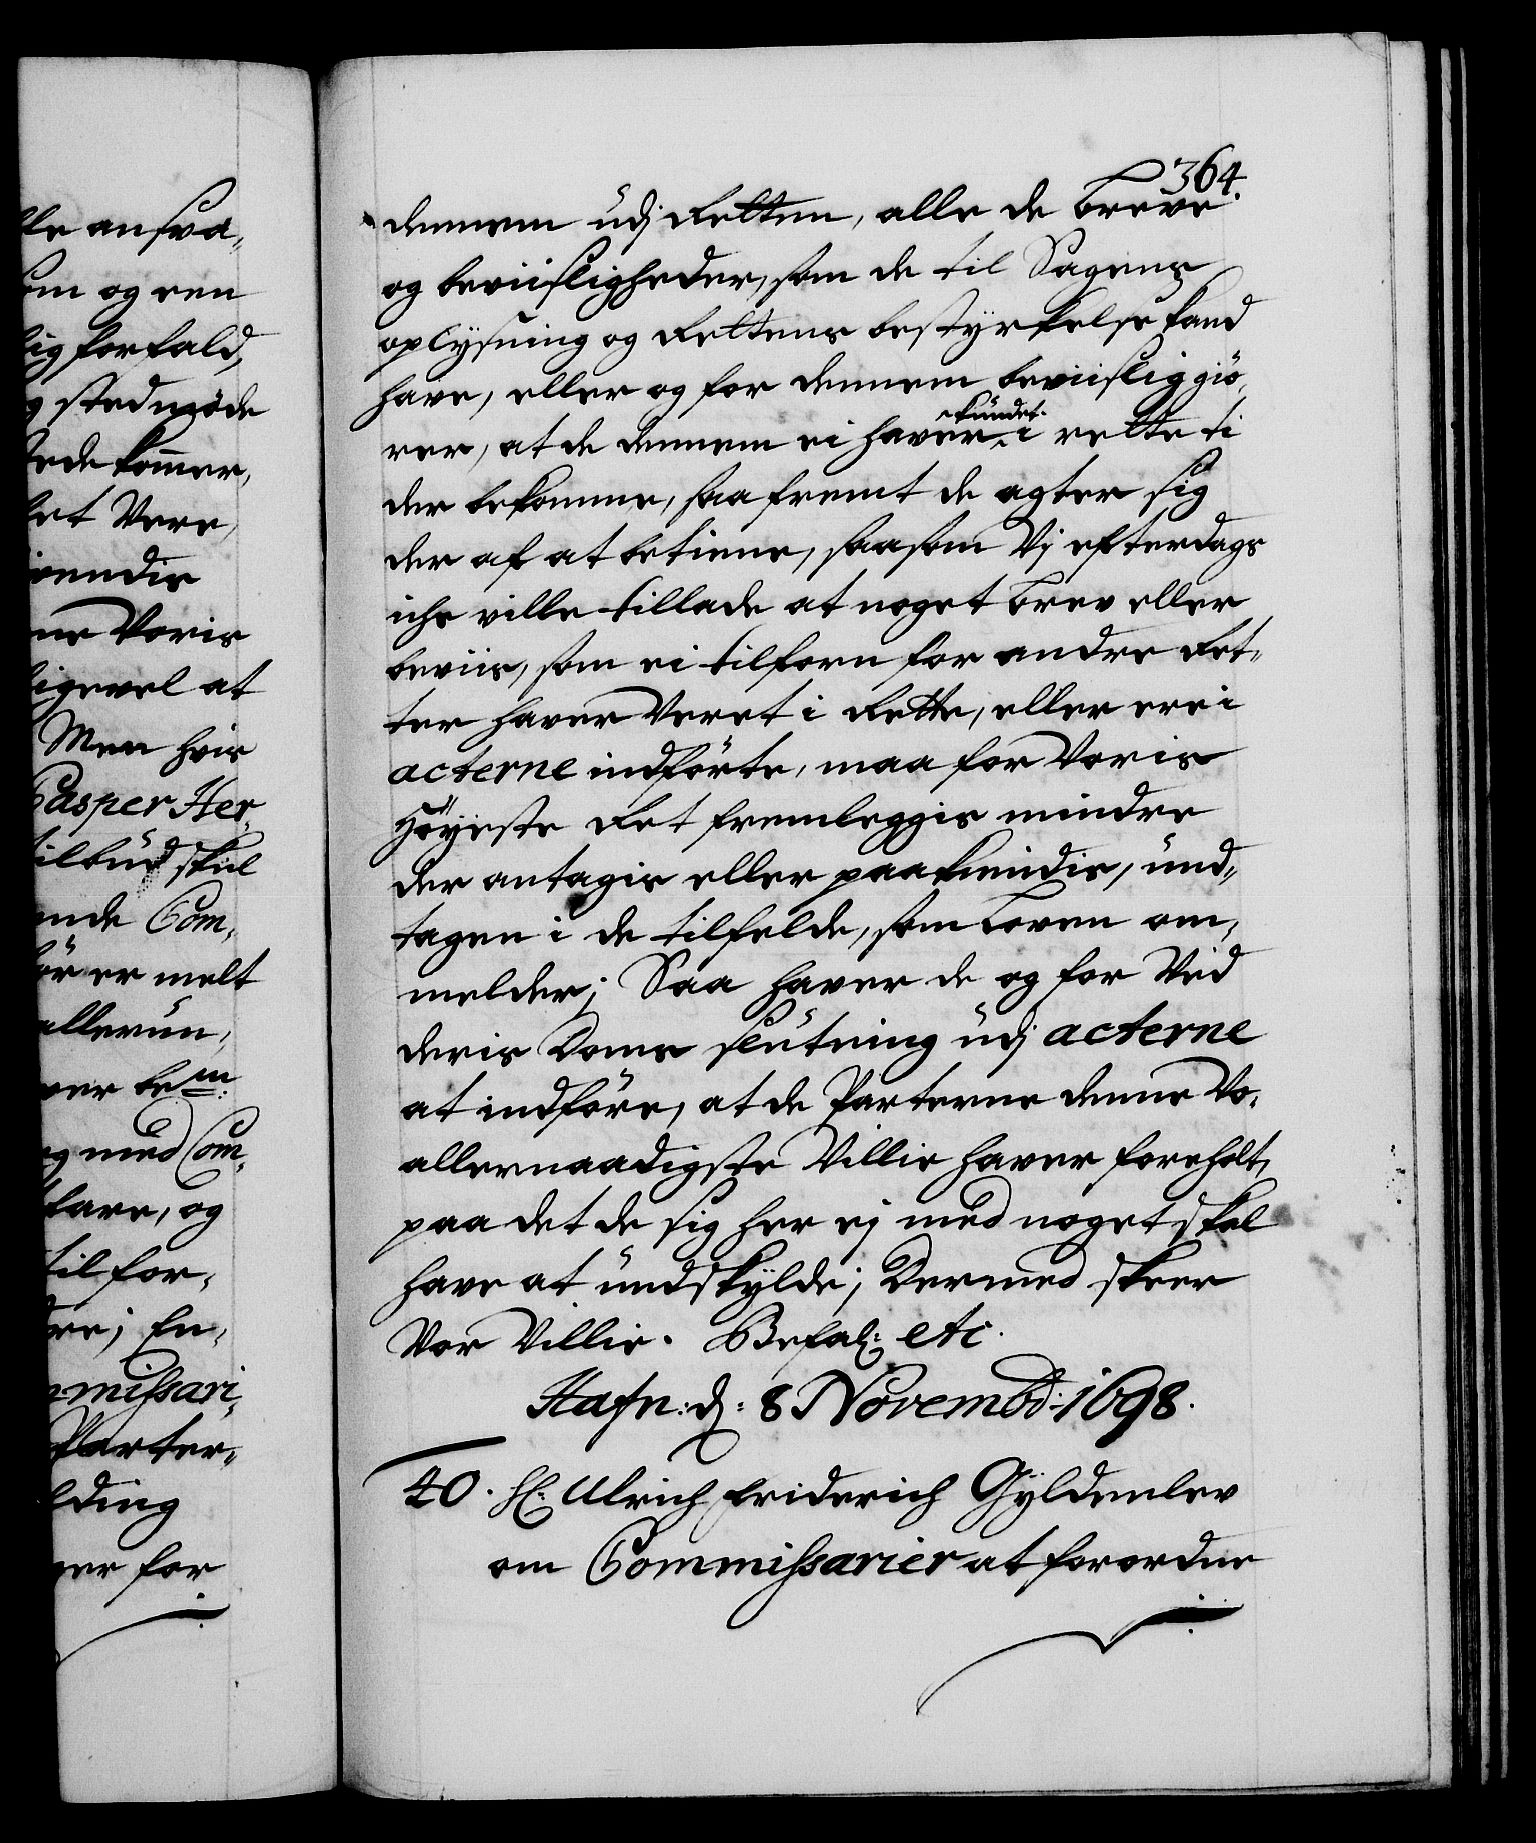 le ansva„
om og een
lig forfald,
g stedmøde
tede kom̄er,
let Vere,
vendis
ne Voris
ligevel at
Men hvis
Casper Her„
tilbud skul
ende Com„
ör er melt
allerun„
ver bem̄:
og med Com„
klare, og
til for„
re; En„
mmissari„
Parter„
lding
er for
364.
dennem udj Retten, alle de breve
og beviisligheder, som de til Sagens
oplysning og Rettens bestyrkelse kand
have, eller og for dennem beviislig giö„
rer, at de dennem ei haver kundet i rette ti
der bekomme, saa fremt de agter sig
der af at betiene, saasom Vj efterdags
iche ville tillade at noget brev eller
beviis, som ei tilforn for andre Ret„
ter haver Veret i Rette, eller ere i
acterne indförte, maa for Voris
Höyeste Ret fremleggis mindre
der antagis eller paakiendis, und„
tagen i de tilfelde, som Loven om„
melder; Saa haver de og for Ved
deris Doms slutning udj acterne
at indföre, at de Parterne denne Vo.
allernaadigste Villie haver foreholt,
paa det de sig her ej med noget skal
have at undskylde; Dermed skeer
Vor Villie. Befal: etc.
Hafn: d: 8 Novembr: 1698.
40. H: Ulrich Friderich Gyldenlev
om Commissarier at forordne